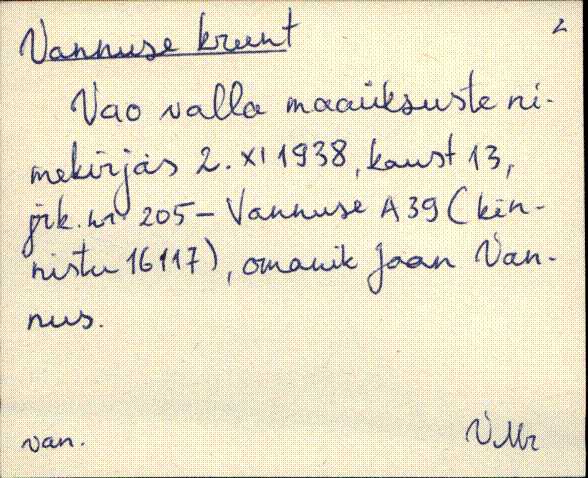 2
Vannuse krunt
Vao valla maaüksuste ni-
mekirjas 2. XI 1938, kaust 13,
jrk. nr 205 – Vannuse A 39 (kin-
nistu 16117), omanik Jaan Van-
nus.
van.
VMr